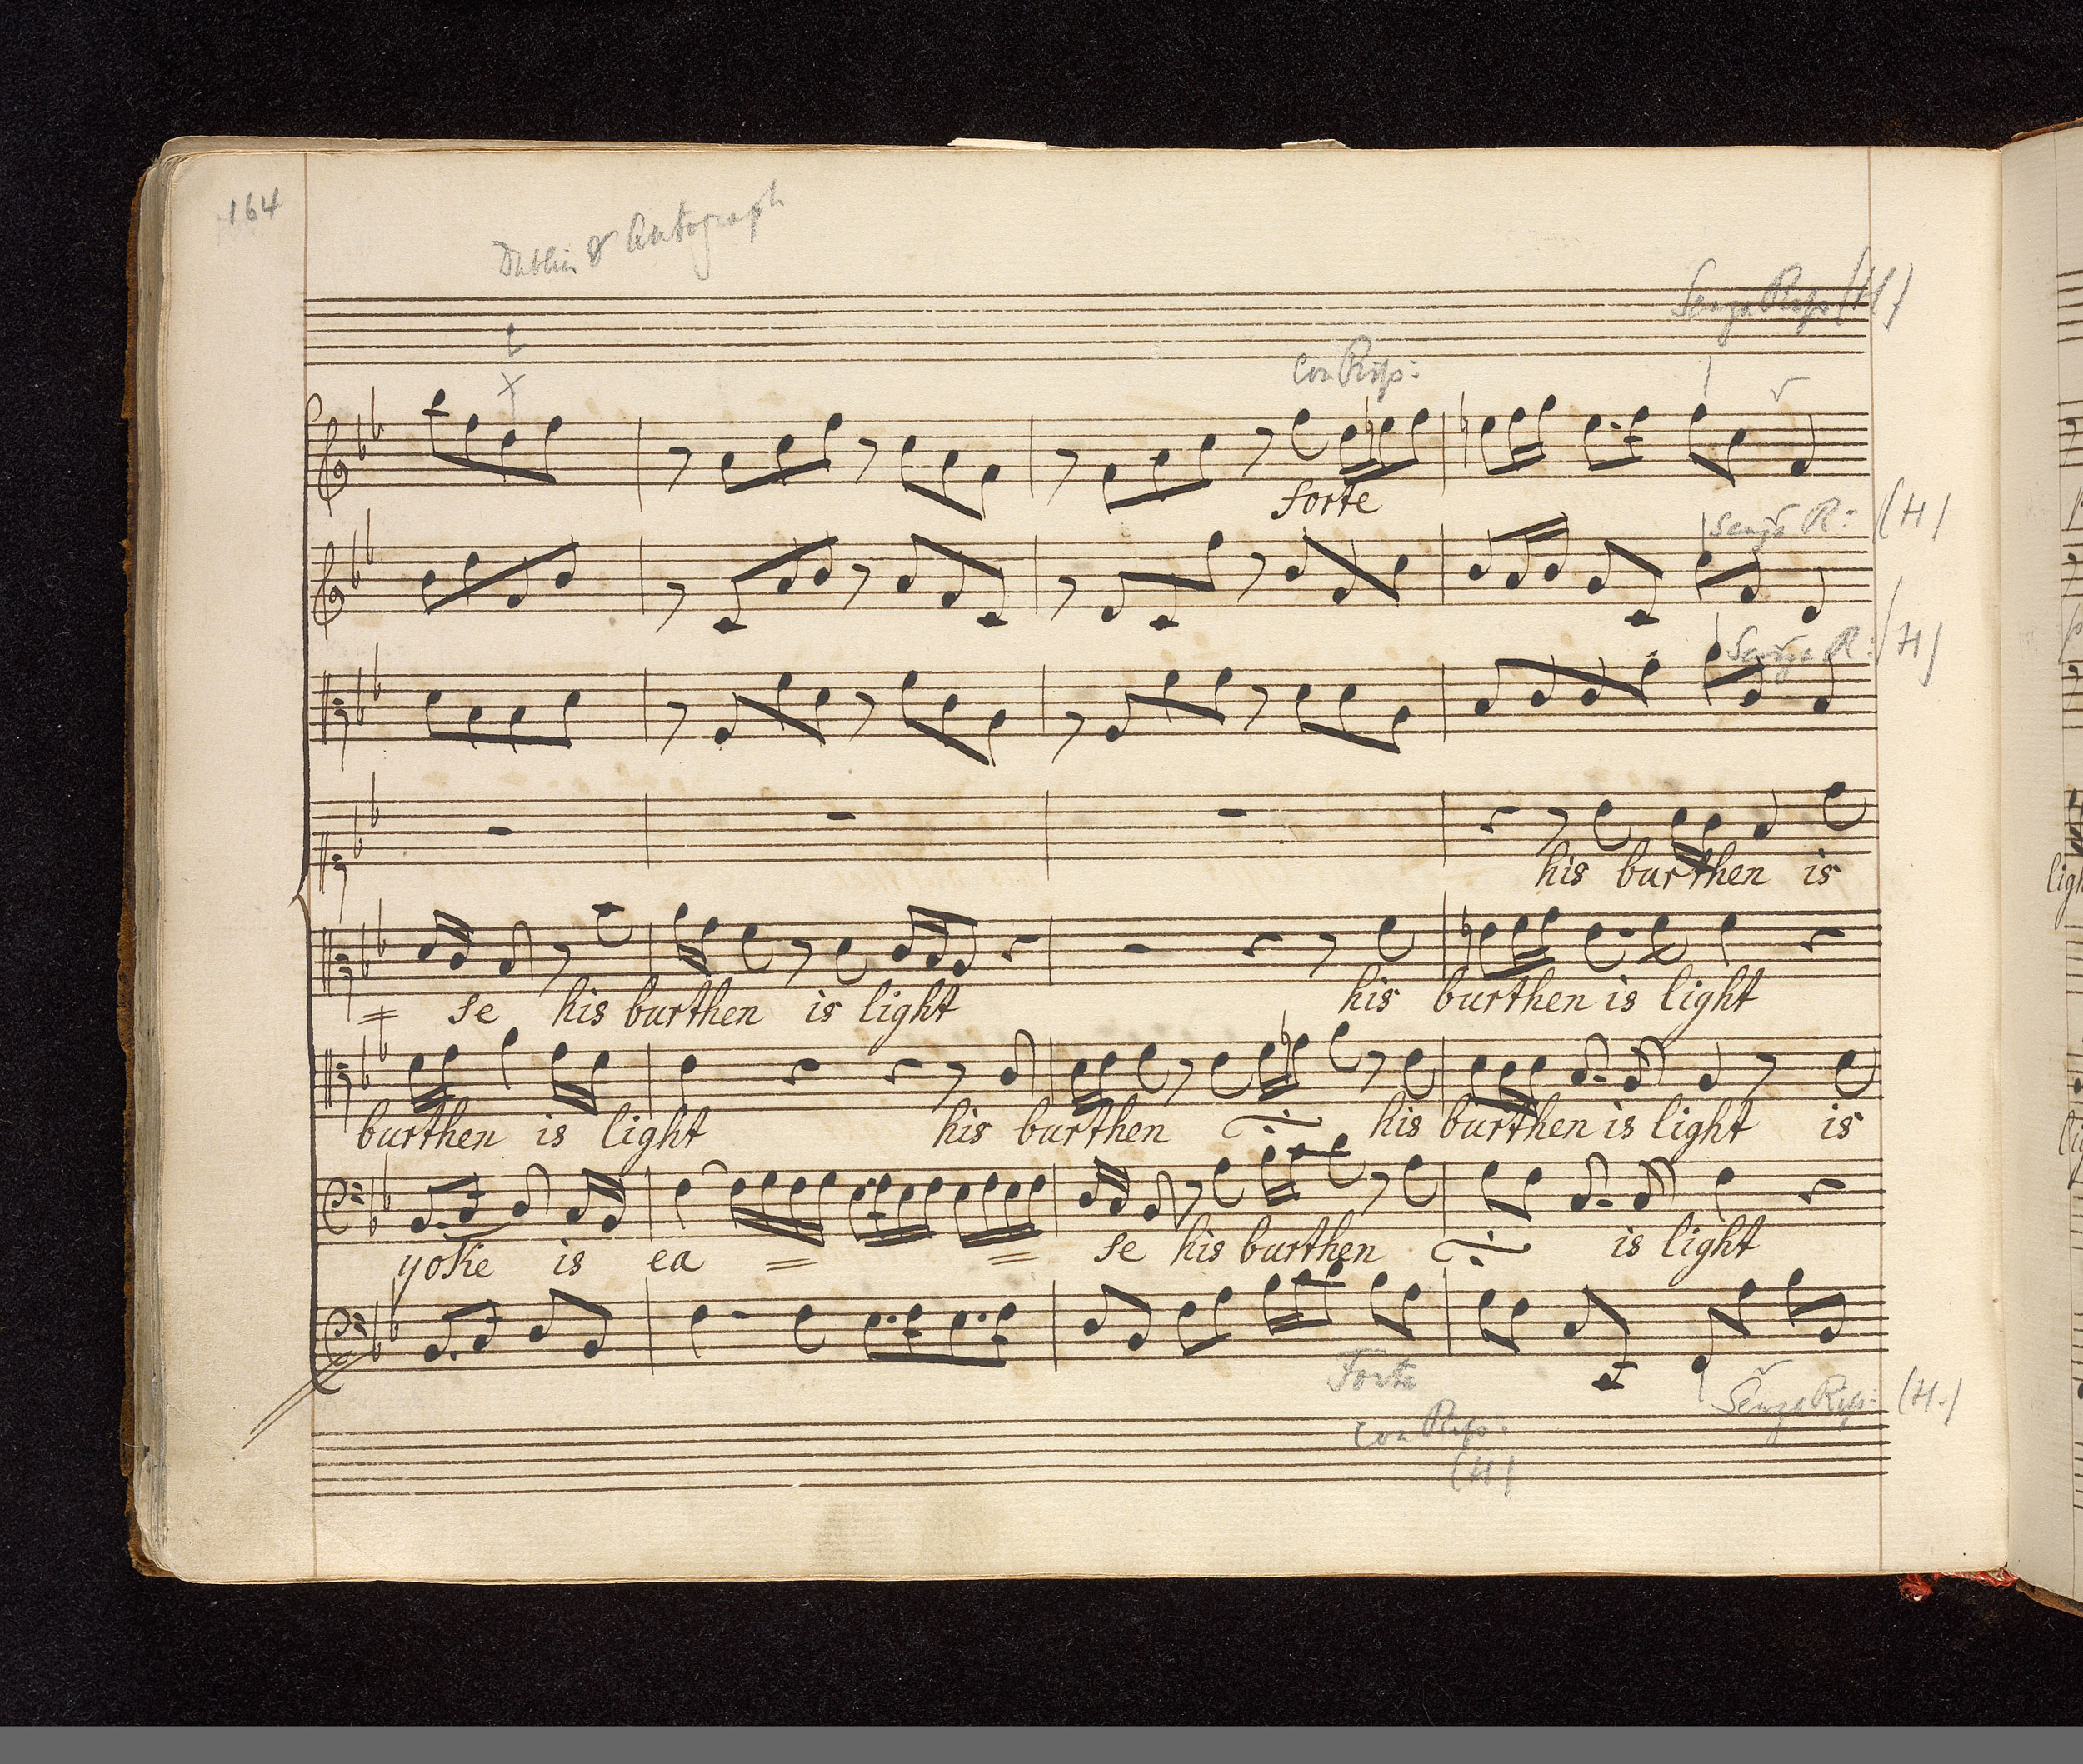 164
Dublin & Autograph
Senza Rip (H)
Con Rip:
forte
Senza R: (H)
Senza R: (H)
his burthen is
= se his burthen is light his burthen is light
burthen is light his burthen his burthen is light is
yoke is ea = = se his burthen is light
Forte
Senza Rip: (H.)
Con Rip:
(H)